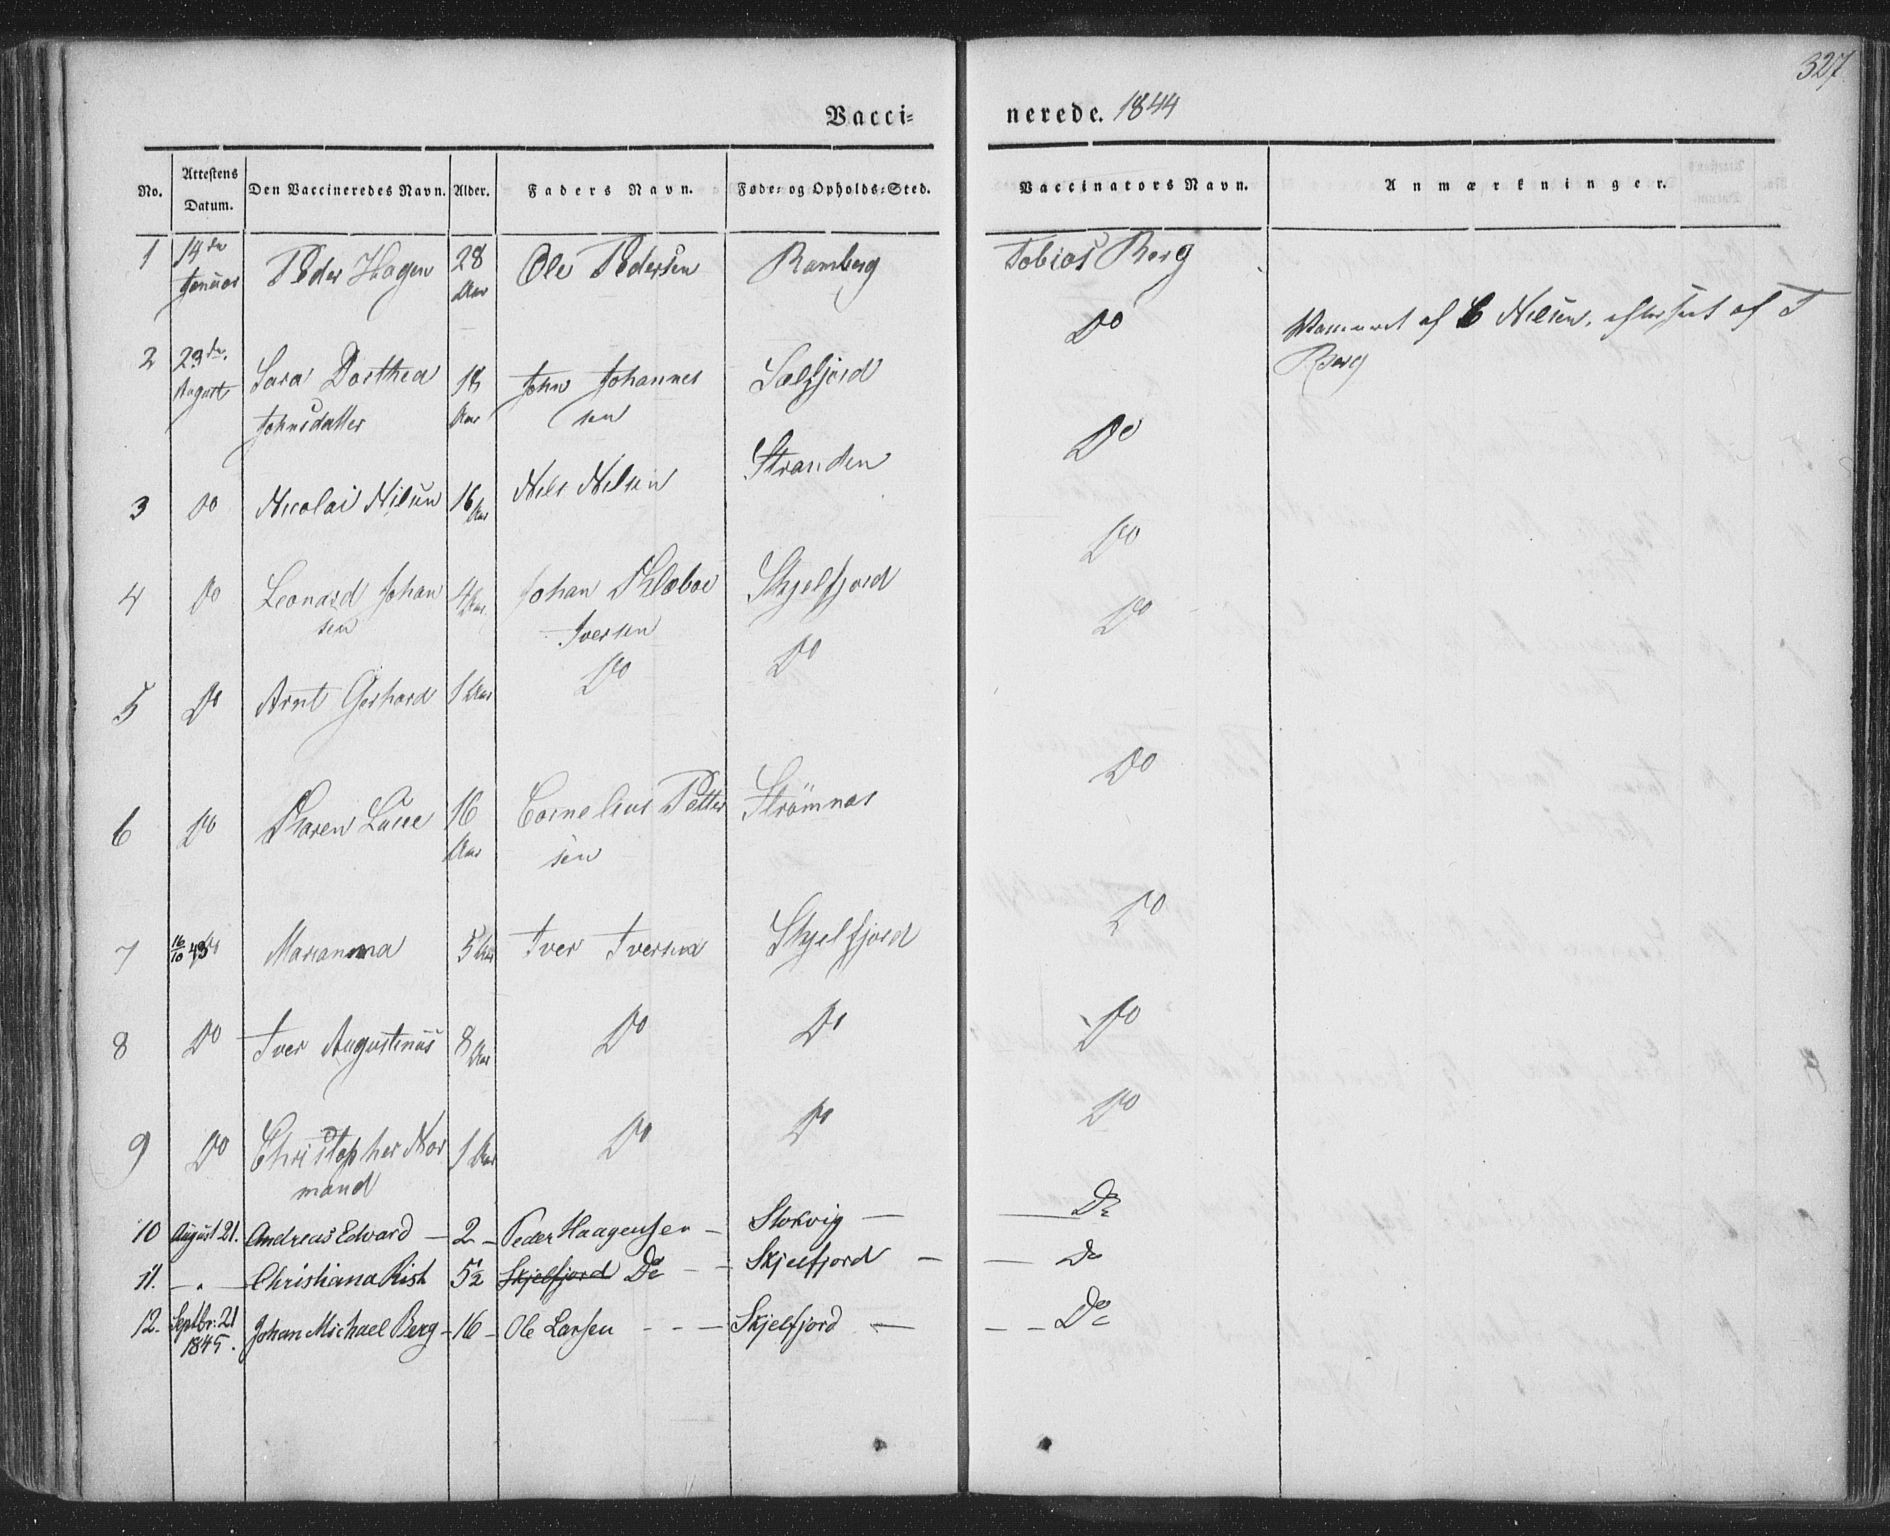 327.
Vacci= nerede. 1844
No. Attestens Datum. Den Vaccineredes Navn. Alder. Faders Navn. Føde- og Opholds-Sted. Vaccinators Navn. Anmærkninger.
1 14de Januar Peder Hagen 28 Aar Ole Pedersen Ramberg Tobias Berg
2 23de August Sara Dorthea 18 Aar John Johannes Selfjord Do af C Nilsen, efterseet af T
Johnsdatter sen Berg
3 Do Nicolai Nilsen 16 Aar Nils Nilsen Stranden Do
4 Do Leonard Johan 4 Aar Johan Klæboe Skjelfjord Do
sen Iversen
5 Do Arnt Gerhard 1 Aar Do Do Do
6 Do Karen Lucie 16 Aar Cornelius Petter Strømnæs Do
sen
7 16/10 43 Do Marianna 5 Aar Iver Iversen Skjelfjord Do
8 Do Iver Augustinus 8 Aar Do Do Do
9 Do Christopher Nor 1 Aar Do Do Do
mand
10 August 21. Andreas Edvard — 2 — Peder Haagensen — Storvig — — Do
11. — " — Christiana Rist 5½ Skjelfjord Do — — Skjelfjord — — Do
12. Septbr. 21 Johan Michael Berg — 16 — Ole Larsen — — — Skjelfjord — — — Do
1845.